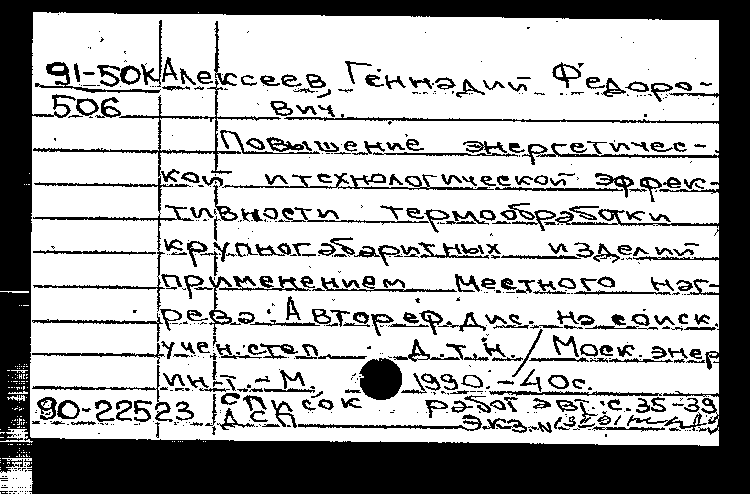 91-50к Алексеев Геннадий Федоро-
506 вич.
Повышение энергетичес-
кой и технологической эффек-
тивности термообработки
крупногабаритных изделий
применением местного наг-
рева: Автореф. дис. на соиск.
учен. степ. д.т.н. / Моск. энер
ин-т. - М. 1990. - 40 с.
90-22523 список работ авт.: с. 35-39
ДСП Экз. N